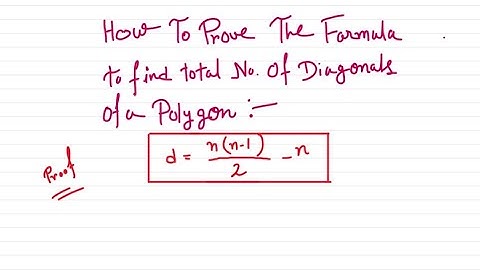 How To Prove The Formula
to find total No. Of Diagonals
of a Polygon :—
d = n(n-1)/2 - n
Proof